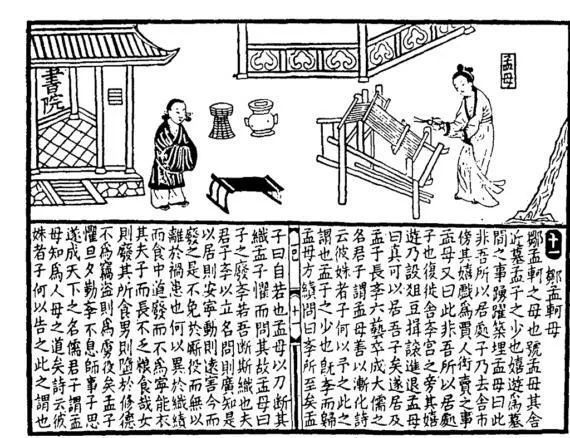 書院
孟母
十一
鄒孟軻母
鄒孟軻之母也號孟母其舍
近墓孟子之少也嬉遊為墓
間之事踴躍築埋孟母曰此
非吾所以居處子乃去舍市
傍其嬉戲為賈人衒賣之事
孟母又曰此非吾所以居處
子也復徙舍學宮之旁其嬉
遊乃設俎豆揖讓進退孟母
曰真可以居吾子矣遂居及
孟子長學六藝卒成大儒之
名君子謂孟母善以漸化詩
云彼姝者子何以予之此之
謂也孟子之少也既學而歸
孟母方績問曰學所至矣孟
子曰自若也孟母以刀斷其
織孟子懼而問其故孟母曰
子之廢學若吾斷斯織也夫
君子學以立名問則廣知是
以居則安寧動則遠害今而
廢之是不免於厮役而無以
離於禍患也何以異於織績
而食中道廢而不為寧能衣
其夫子而長不乏糧食哉女
則廢其所食男則墮於修德
不為竊盜則為虜役矣孟子
懼旦夕勤學不息師事子思
遂成天下之名儒君子謂孟
母知為人母之道矣詩云彼
姝者子何以告之此之謂也